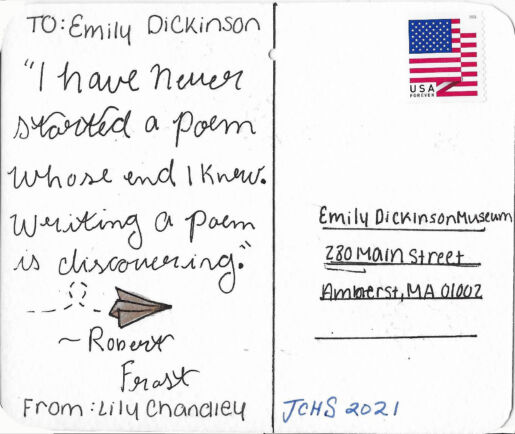 TO: Emily Dickinson
"I have never
started a poem
whose end I knew.
Writing a poem
is discovering."
~Robert
Frost
From: Lily Chandley
USA
FOREVER
Emily Dickinson Museum
280 Main Street
Amherst, MA 01002
JCHS 2021